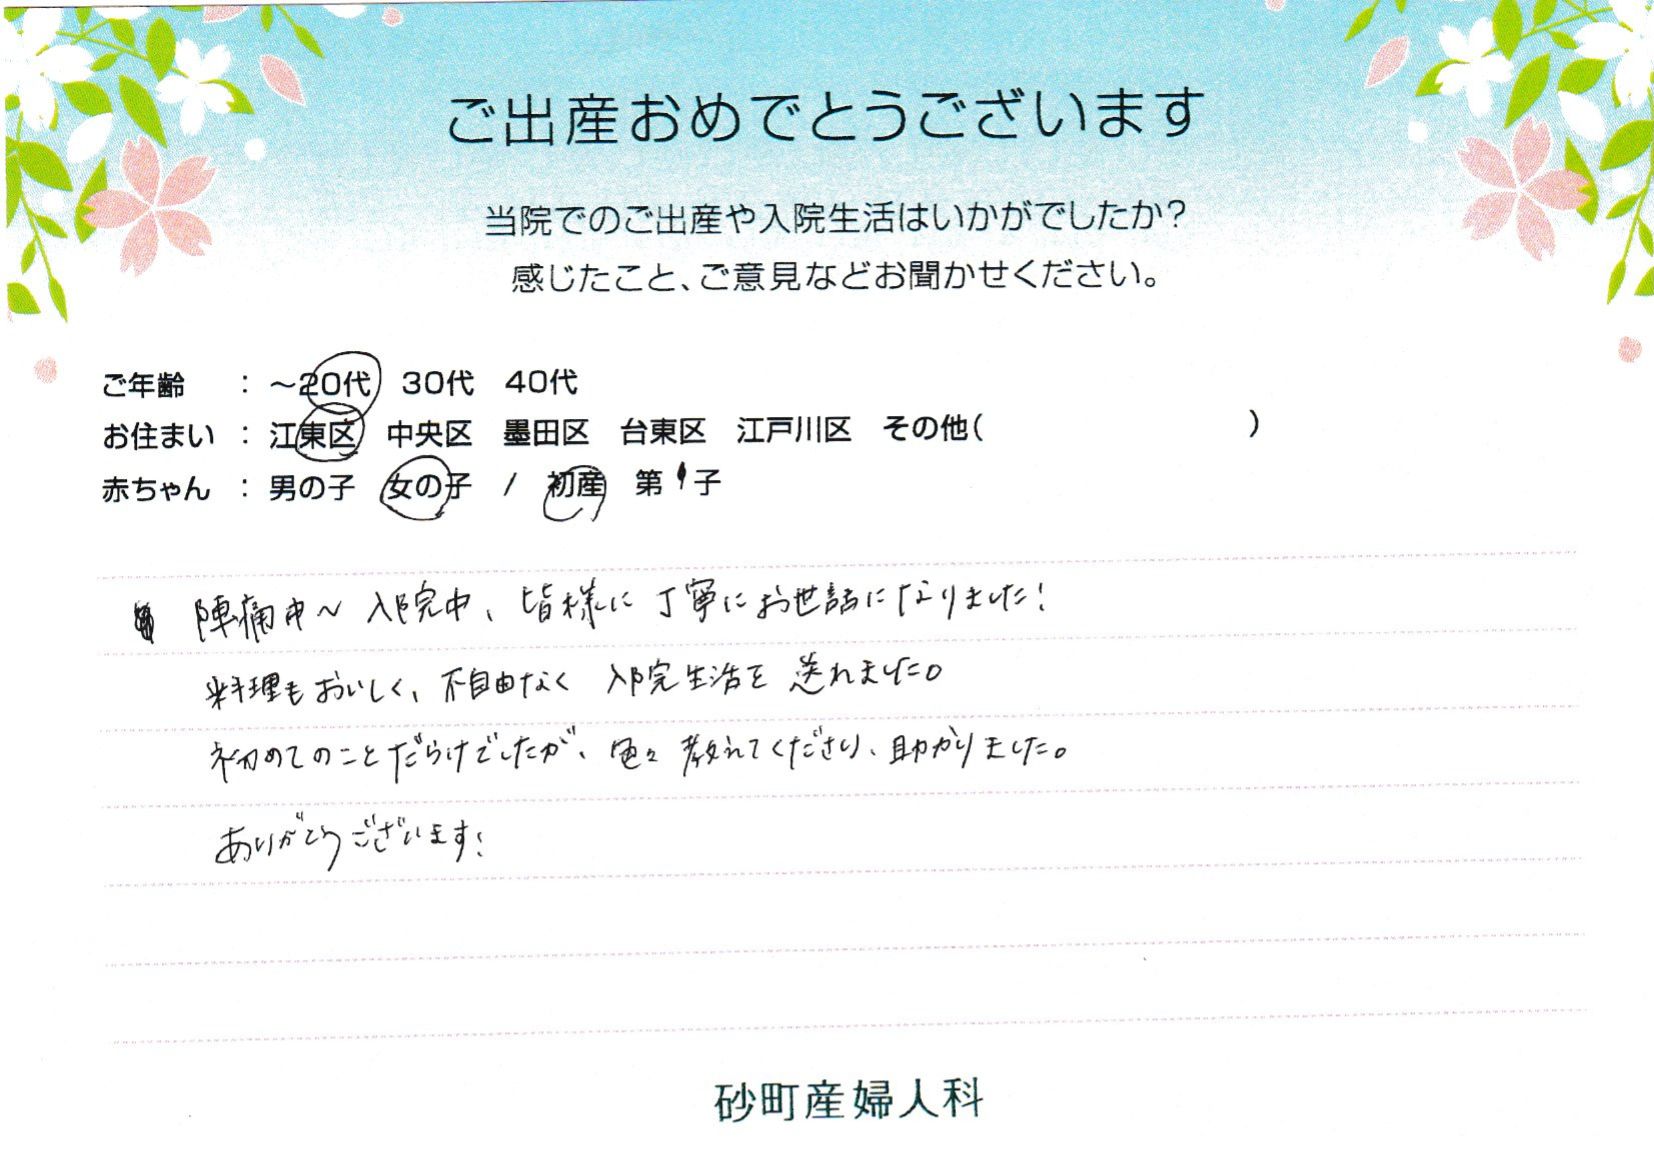 ご出産おめでとうございます
当院でのご出産や入院生活はいかがでしたか?
感じたこと、ご意見などお聞かせください。
ご年齢 : ～20代 30代 40代
お住まい : 江東区 中央区 墨田区 台東区 江戸川区 その他( )
赤ちゃん : 男の子 女の子 / 初産 第1子
陣痛中～入院中、皆様に丁寧にお世話になりました!
料理もおいしく、不自由なく入院生活を送れました。
初めてのことだらけでしたが、色々教えてくださり、助かりました。
ありがとうございます!
砂町産婦人科